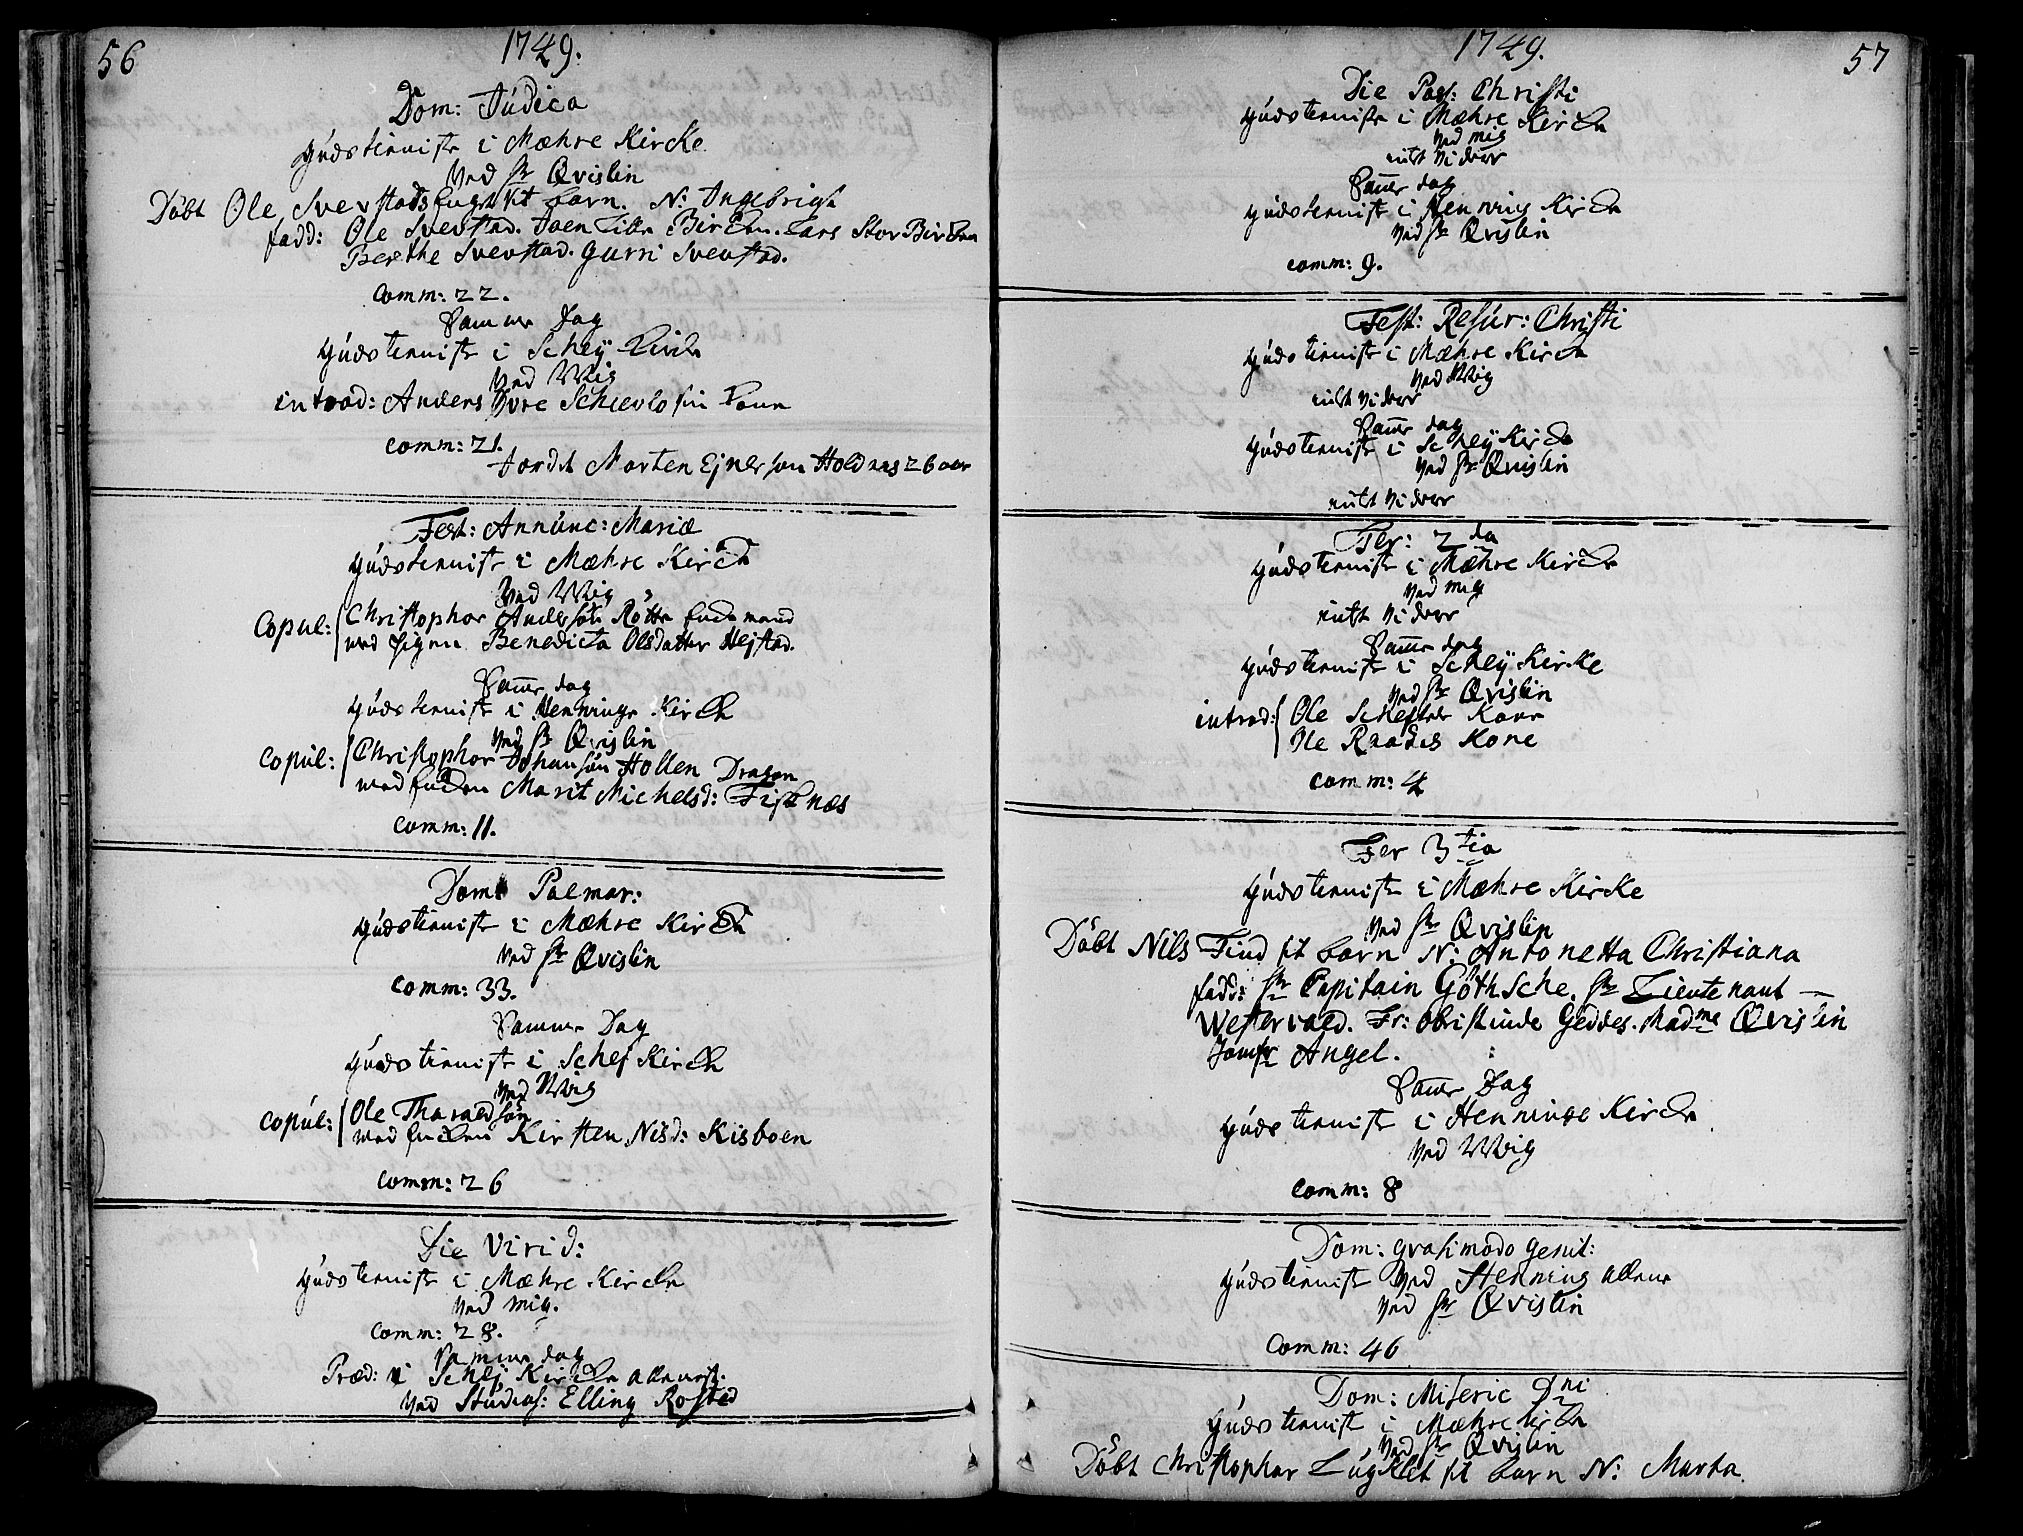 56
1749.
Dom: Júdica
Gúdstienist i Mæhre Kircke
ved Hr Qvislin
Döbt Ole Svevstads sit barn. N: Ingebrigt
fadd: Ole Svevstad. Joen Lille Bircken. Lars Stor Bircken
Berethe Svevstad. Gurri Svevstad.
Comm: 22.
Samme Dag
Gúdstienist i Schey Kircke
ved Wig
introd: Anders Schievlo sin Kone
comm: 21.
Jordet Morten Ejnersøn Holdaas 26 aar
Fest: Annúnc: Mariæ
Gúdstienist i Mæhre Kircke
ved Wig
Copul: Christophor Andersøn Rötte Enckemand
med Pigen Benedicta Olsdatter Hejstad.
Same dag
Gúdstienist i Henninge Kircke
ved Hr Qvislin
Copúl: Christophor Johansøn Hollen Dragon
med Encken Marit Michelsd: Fisknæs
Comm: 11.
Dom: Palmar:
Gúdstienist i Mæhre Kircke
ved Hr Qvislin
Comm: 33.
Samme Dag
Gúdstienist i Schej Kircke
ved Wig
Copúl: Ole Tharaldsøn
med Encken Kirsten Nisd: Kisboen
Comm: 26
Die Virid:
Gúdstienist i Mæhre Kircke
ved mig.
Comm: 28.
Samme dag
Præd: i Schej Kircke allenest.
ved Stúdios: Elling Rosted
57
1749.
Die Pass: Christi
Gúdstienist i Mæhre Kircke
ved mig
intet videre
Same dag
Gúdstienist i Hennings Kircke
ved Hr Qvislin
comm: 9.
Fest: Resúr: Christi
Gúdstienist i Mæhre Kircke
ved Wig
intet videre
Same dag
Gúdstienist i Schey Kircke
ved Hr Qvislin
intet videre
Fer: 2da
Gúdstienist i Mæhre Kircke
ved mig
intet videre
Same dag
Gúdstienist i Schey Kirke
ved Hr Qvislin
introd: Ole Scheftes Kone
Ole Raades Kone
comm: 4
Fer 3tia
Gúdstienist i Mæhre Kirke
ved Hr Qvislin
Döbt Nils Find sit barn N: Antonetta Christiana
fadd: Hr Capitain Göthsche. Hr Lieutenant
Westervald. Fr: Obristinde Geddes. Madme Qvislin
Jomfr Angel.
Same Dag
Gúdstienist i Henninge Kircke
ved Wig
Comm: 8
Dom: Qvasimodo Genit:
Gúdstienist ved Hennings allene
ved Hr Qvislin
Comm: 46
Dom: Miseric Dni
Gúdstienist i Mæhre Kircke
ved Hr Qvislin
Döbt Christophor Lúgklet sit barn N: Marta.